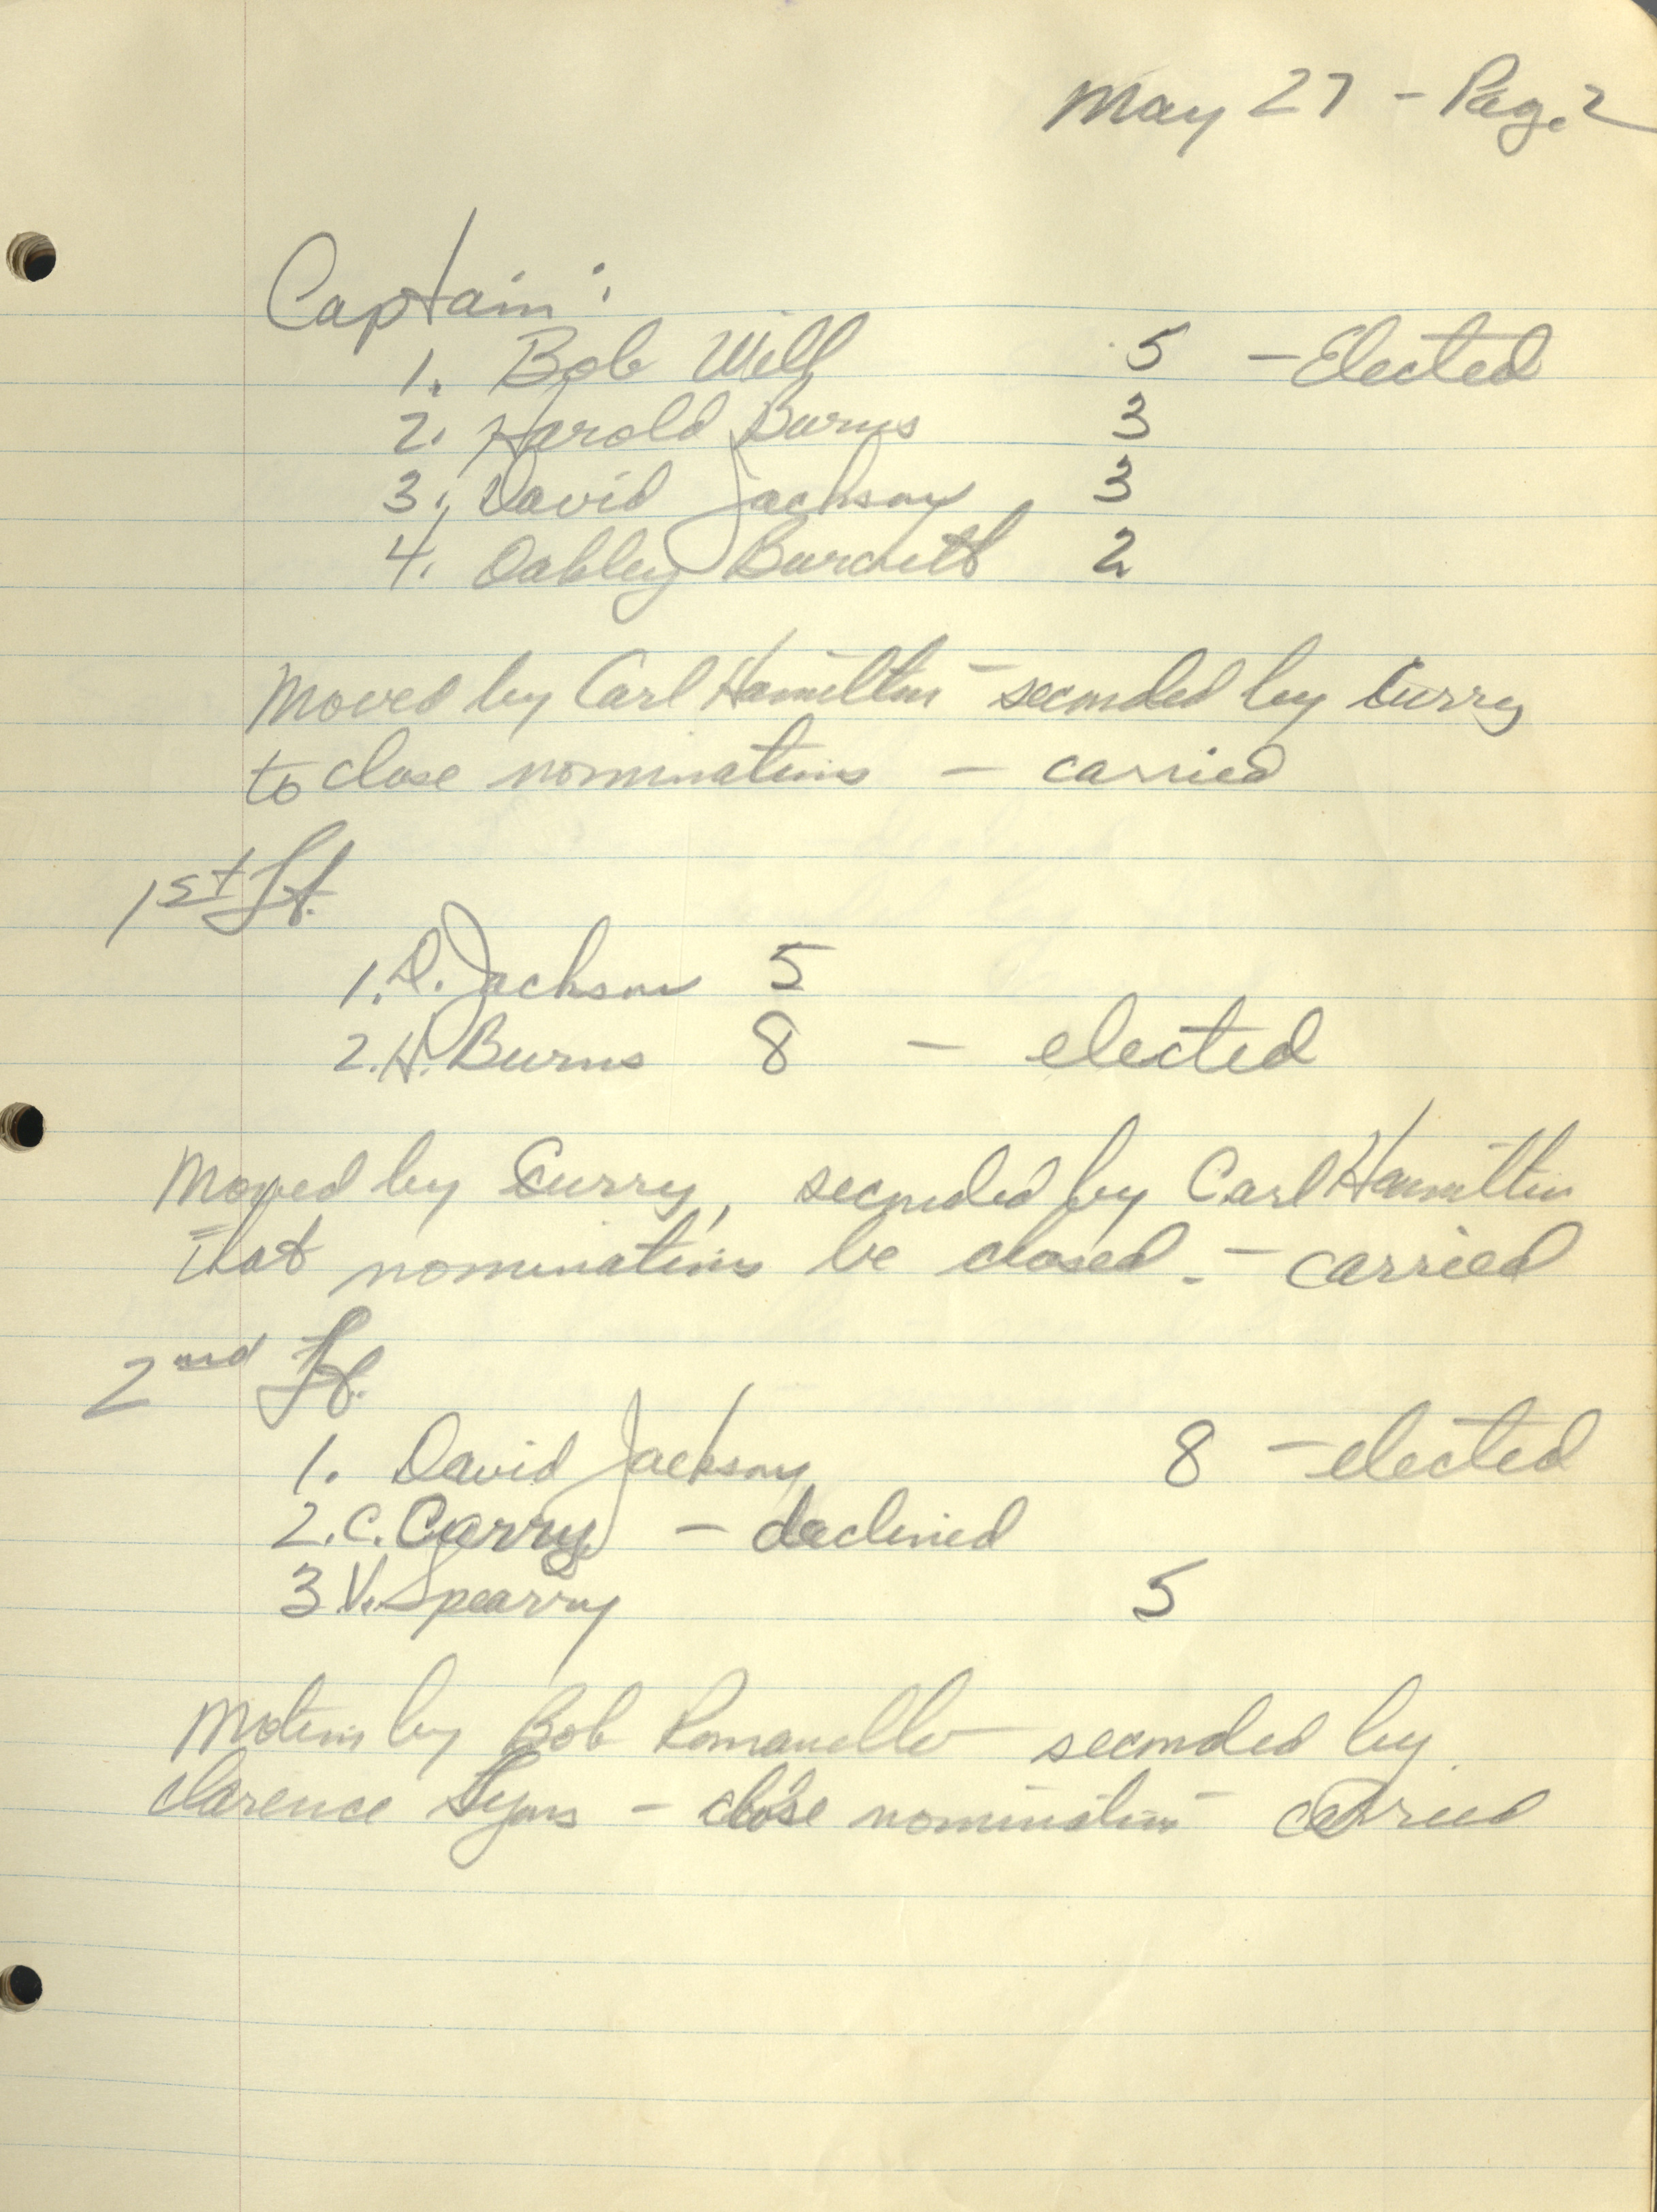 May 27 - Page 2
Captain:
1. Bob Will 5 - Elected
2. Harold Burns 3
3. David Jackson 3
4. Oakley Burdett 2
Moved by Carl Hamilton - seconded by Curry
to close nominations - carried
1st Lt.
1. D. Jackson 5
2. H. Burns 8 - elected
Moved by Curry, seconded by Carl Hamilton
that nominations be closed. - carried
2nd Lt.
1. David Jackson 8 - elected
2. C. Curry - declined
3 V. Spearry 5
Motion by Bob Romanello - seconded by
Clarence Lyons - close nomination - carried